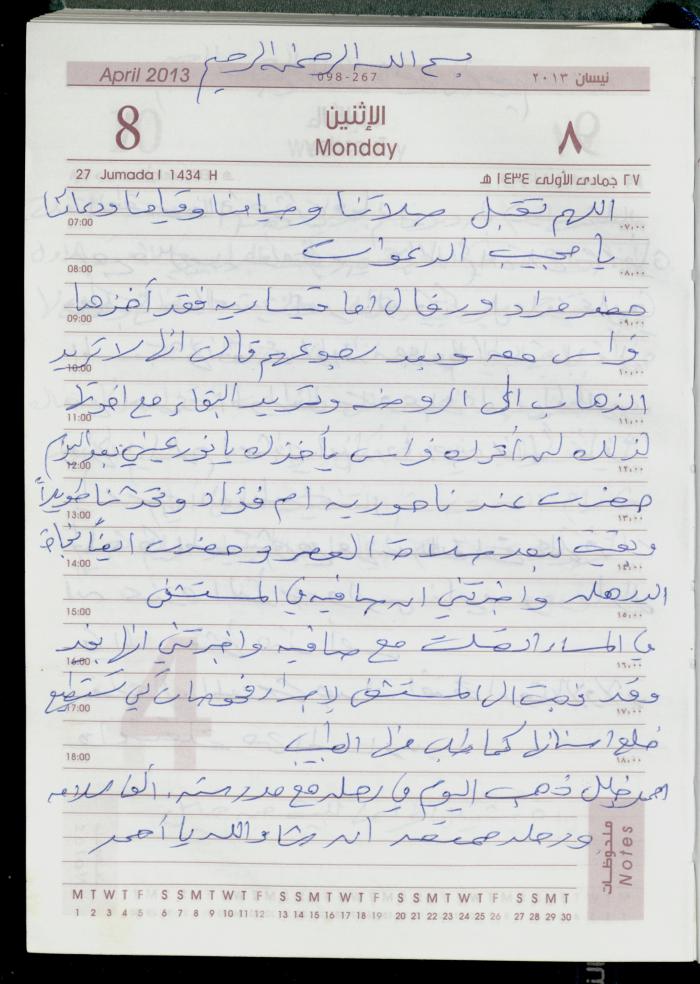 بسم الله الرحمن الرحيم
April 2013 098-267 نيسان ٢٠١٣
8 الإثنين ٨
Monday
27 Jumada I 1434 H ٢٧ جمادى الأولى ١٤٣٤ هـ
اللهم تقبل صلاتنا وصيامنا وقيامنا ودعائنا
07:00 ٠٧,٠٠
يا مجيب الدعوات
08:00 ٠٨,٠٠
حضر مراد ورفال اما قيساريه فقد أخذها
09:00 ٠٩,٠٠
فراس معه وبعد رجوعهم قال انها لا تريد
10:00 ١٠,٠٠
الذهاب الى الروضه وتريد البقاء مع اخوتها
11:00 ١١,٠٠
لذلك لن أترك فراس يأخذك يا نور عيني بعد اليوم
12:00 ١٢,٠٠
حضرت عند ناحوريه ام فؤاد وتحدثنا طويلاً
13:00 ١٣,٠٠
وبقيت لبعد صلاة العصر وحضرت ايضاً نجاة
14:00 ١٤,٠٠
واخبرتني ان صافيه في المستشفى
15:00 ١٥,٠٠
في المساء اتصلت مع صافيه واخبرتني انها بخير
16:00 ١٦,٠٠
وقد ذهبت الى المستشفى لإجراء فحوصات كي تستطيع
17:00 ١٧,٠٠
خلع اسنانها كما طلب منها الطبيب
18:00 ١٨,٠٠
احمد ذهب اليوم في رحله مع مدرسته. الف سلامه
ورحله ممتعه ان شاء الله يا أحمد
ملحوظات
Notes
M T W T F S S M T W T F S S M T W T F S S M T W T F S S M T
1 2 3 4 5 6 7 8 9 10 11 12 13 14 15 16 17 18 19 20 21 22 23 24 25 26 27 28 29 30